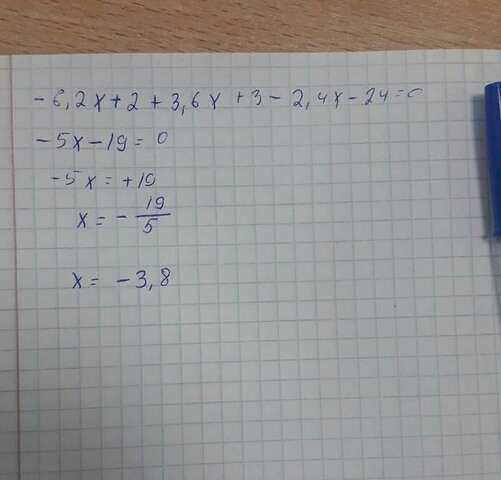 -6,2x+2+3,6x+3-2,4x-24=0
-5x-19=0
-5x=+19
x=-19/5
x=-3,8